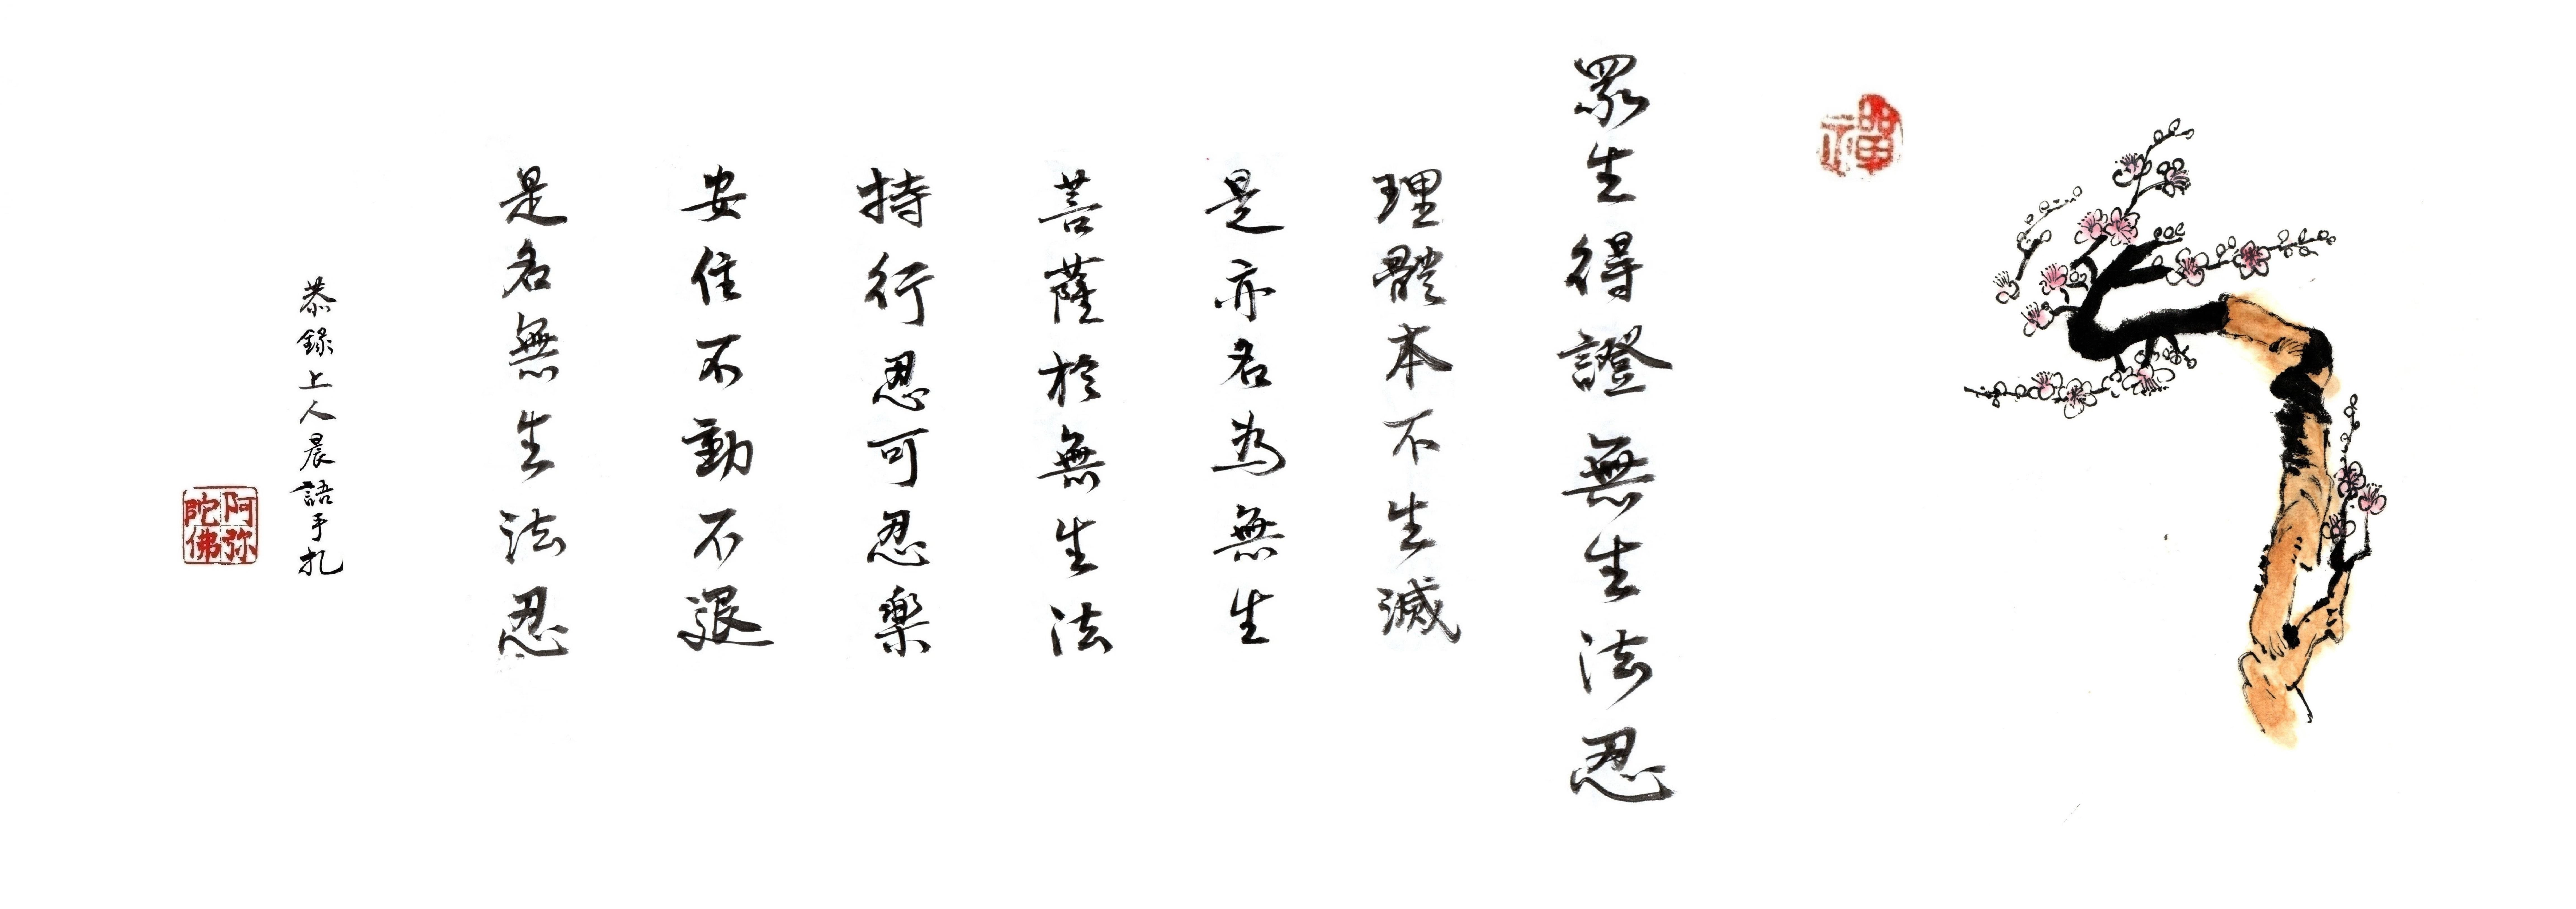 禪
眾生得證無生法忍
理體本不生滅
是亦名為無生
菩薩於無生法
持行忍可忍樂
安住不動不退
是名無生法忍
恭錄上人晨語手扎
阿弥陀佛